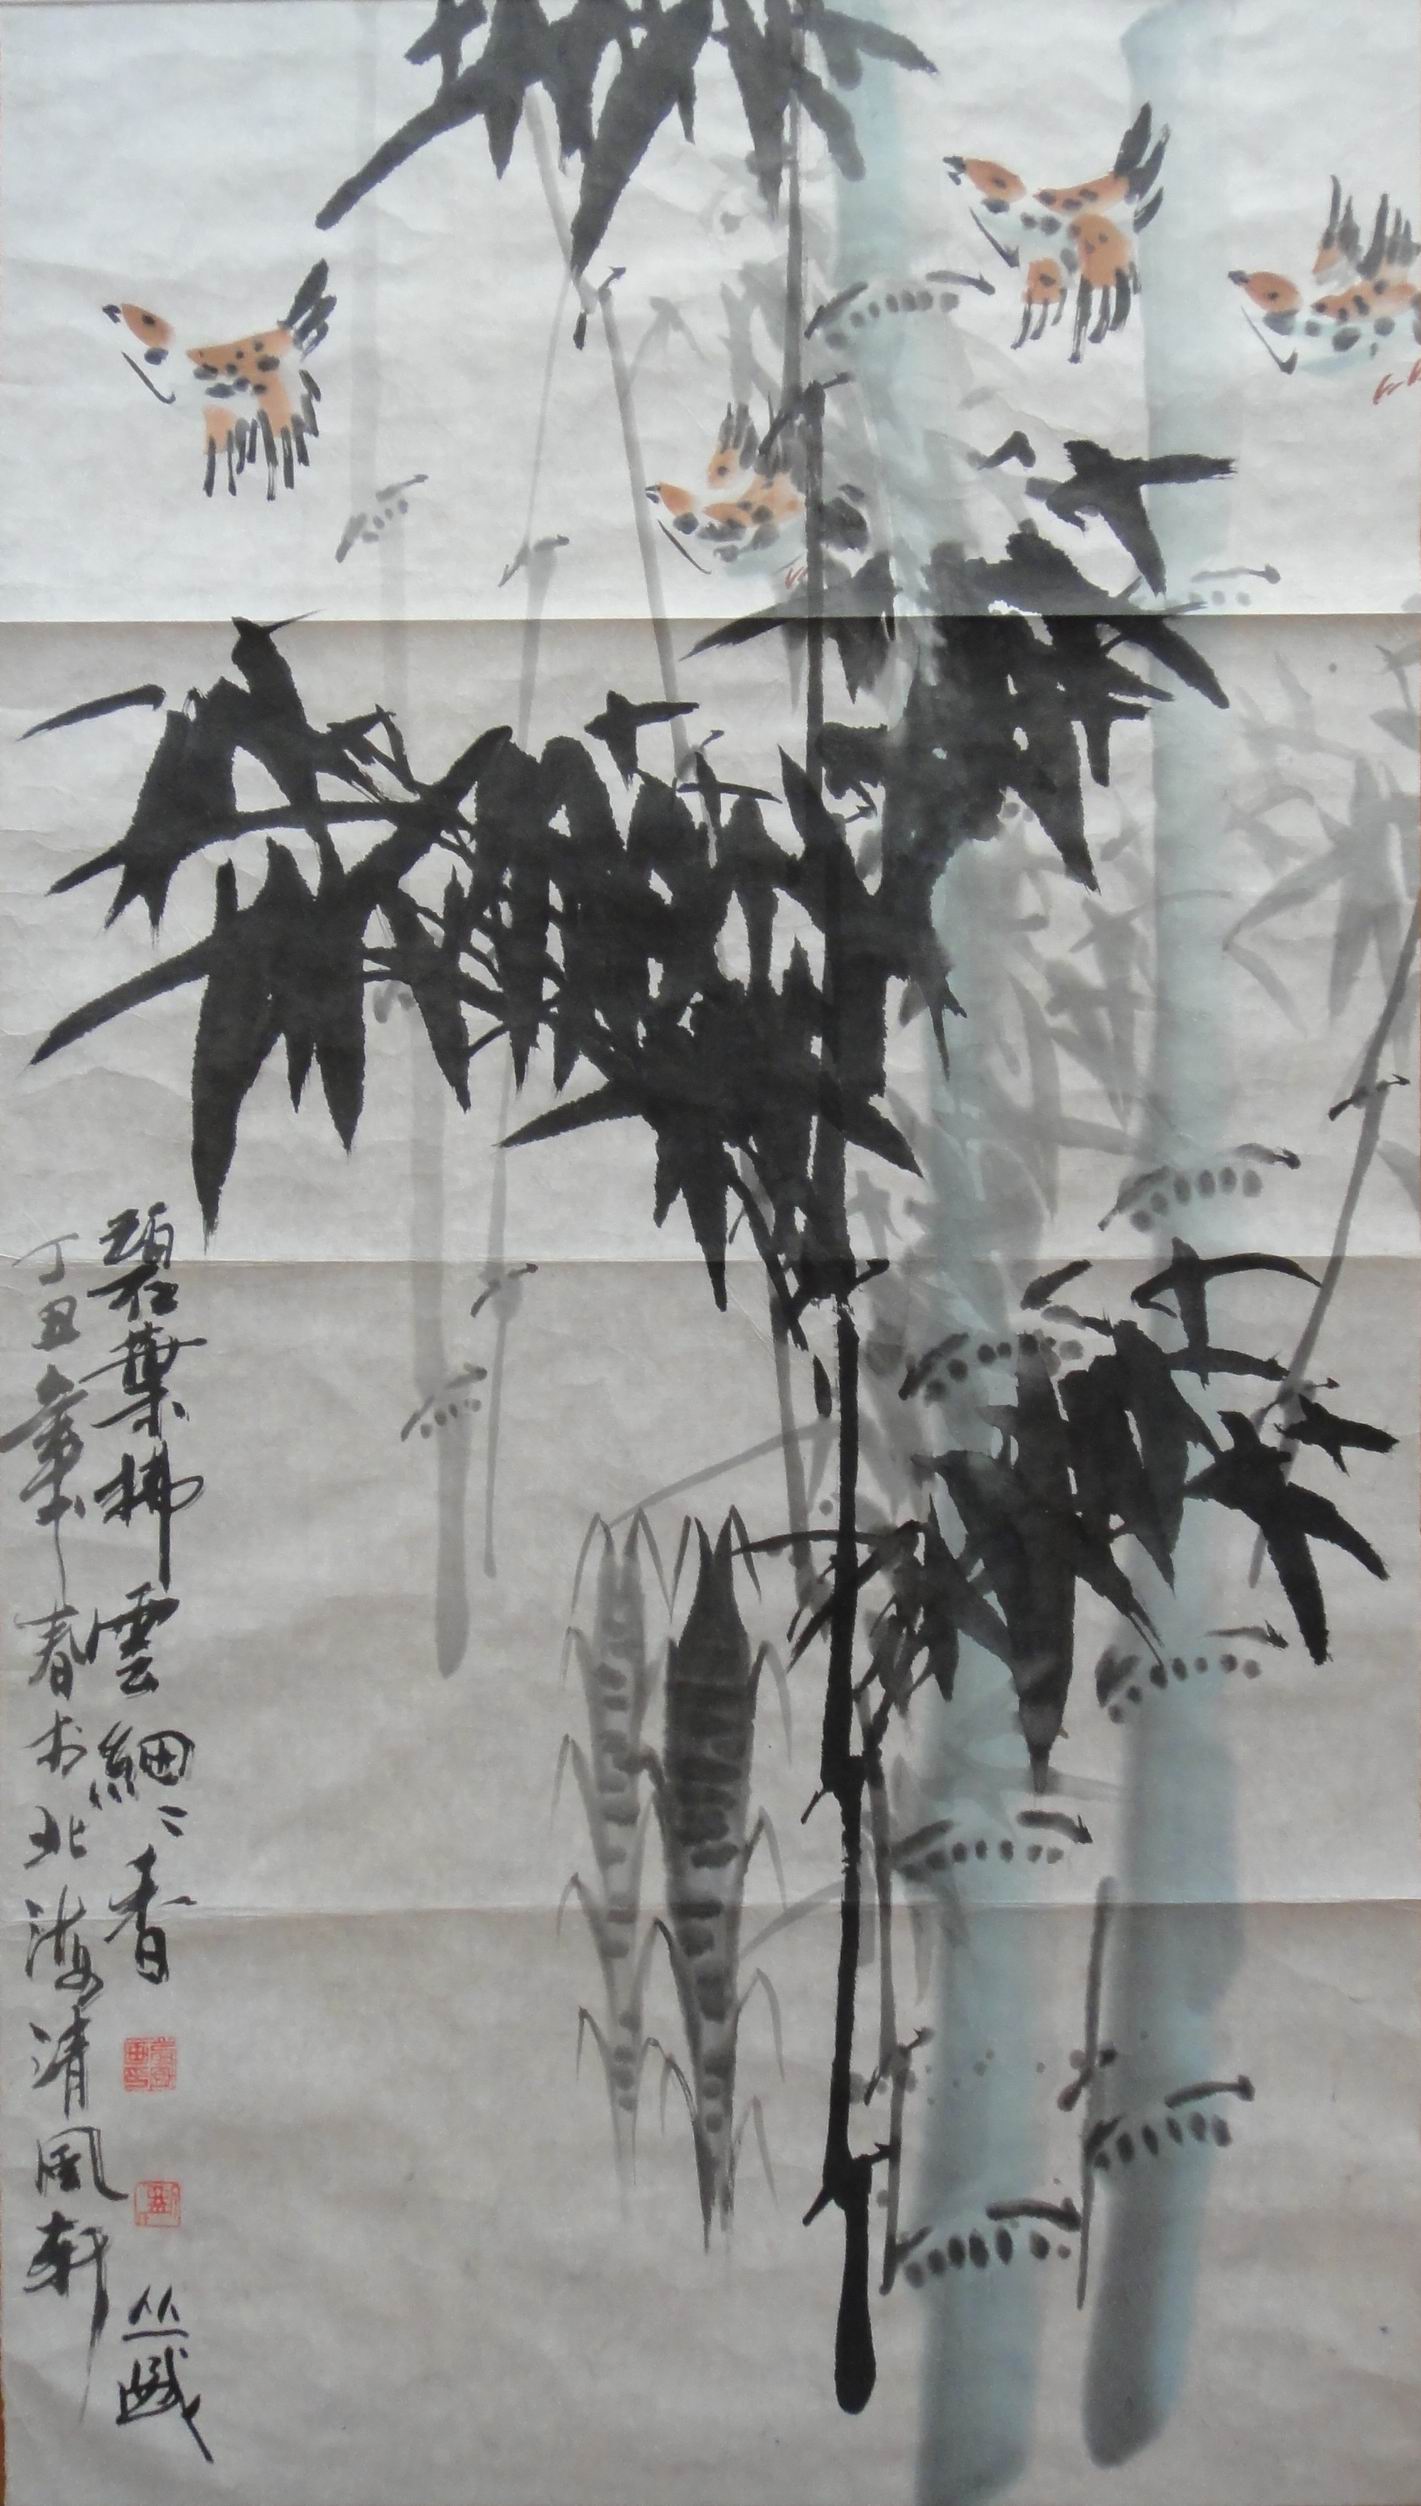 碧葉拂雲細細香
丁丑年春於北海清風軒